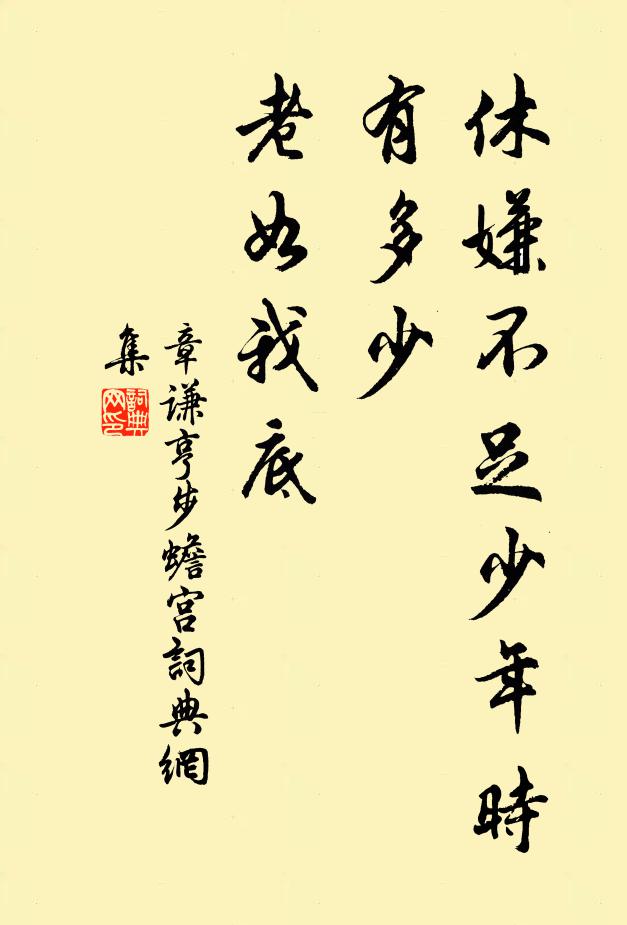 休嫌不足少年時
有多少
老如我底
章谦亨步蟾宫詞典網
集
詞典
网印